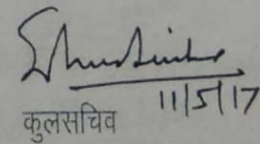 11/5/17
कुलसचिव